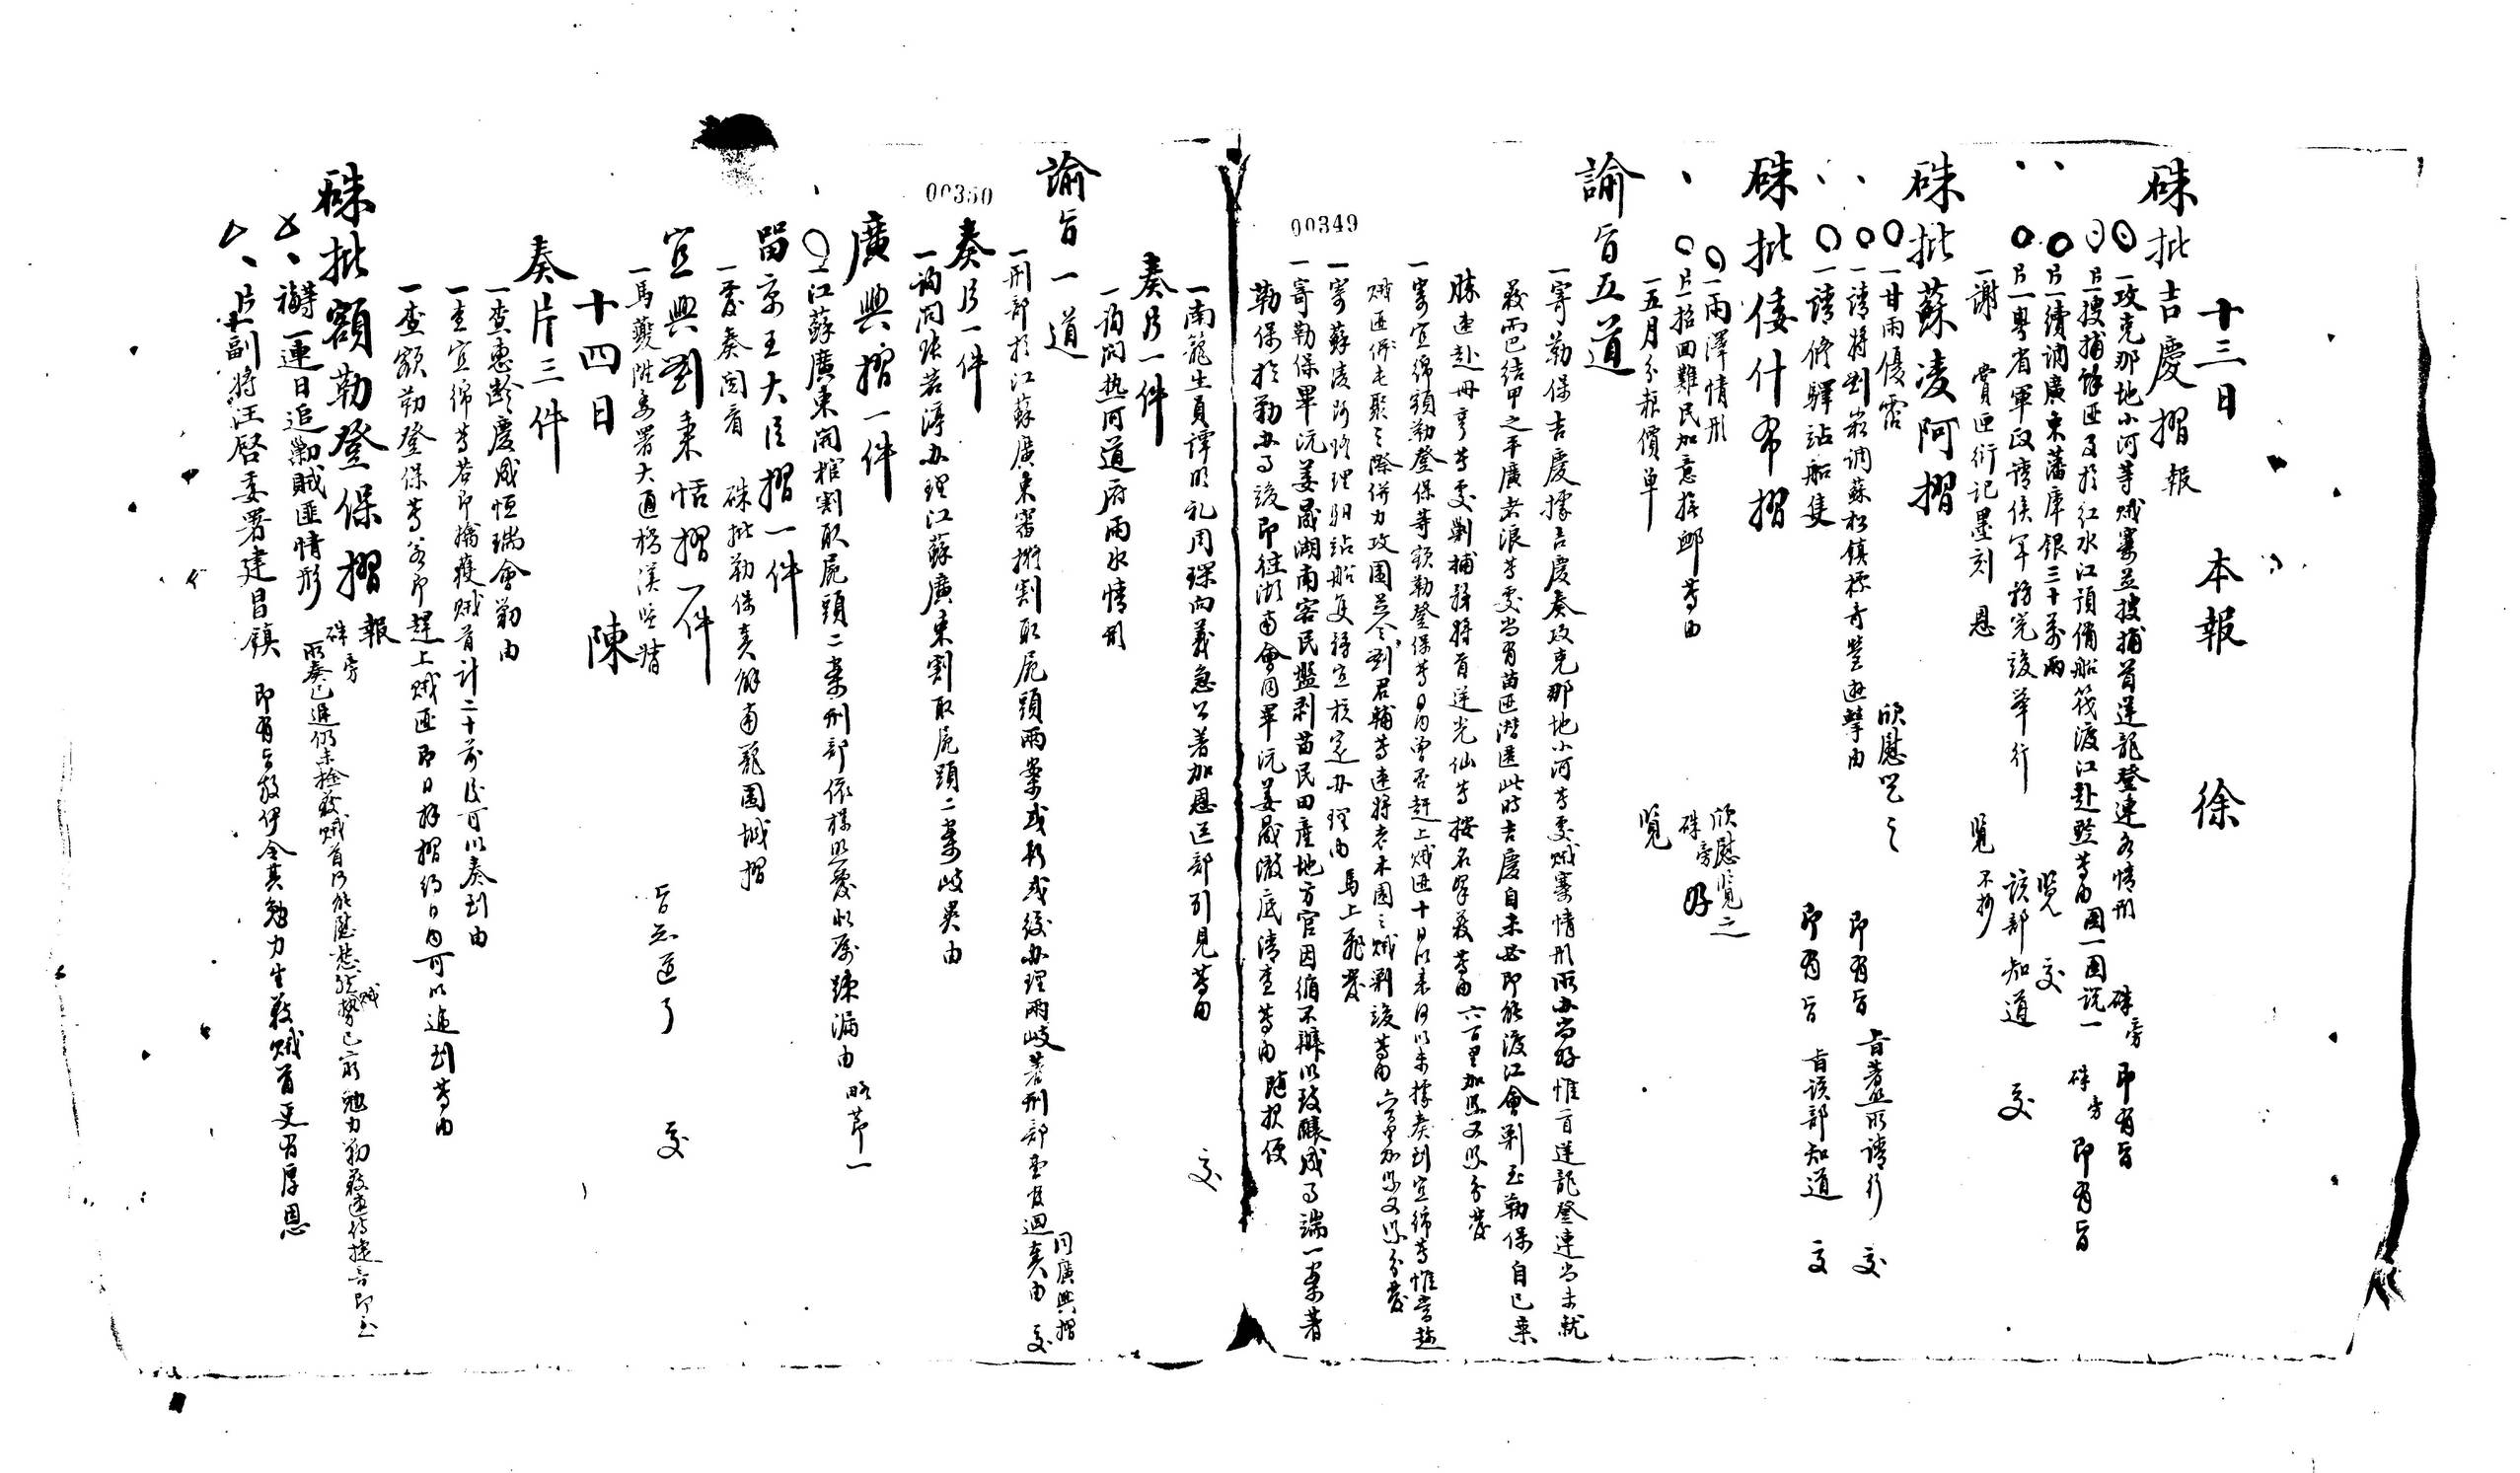 十三日 本報 徐
硃批吉慶摺 報
一攻克那地小河等賊寨並搜捕首逆龍登連各情形 硃旁 即有旨
片一搜捕餘匪及於紅水江預備船筏渡江赴黔等由 圈一圈説一 硃旁 即有旨
片一續調廣東藩庫銀三十萬兩 覽 交
片一粵省軍政請俟軍務完竣舉行 該部知道 交
一謝 賞匣衍記墨刻 恩 覽 不抄
硃批蘇凌阿摺
一甘雨優霑 欣慰覽之
一請將劉 調蘇松鎮標奇營遊擊由 即有旨 旨著照所請行 交
一請修驛站船隻 即有旨 旨該部知道 交
硃批倭什布摺
一雨澤情形 欣慰覽之
片一招回難民加意撫卹等由 硃旁 好
一五月分糧價單 覽
諭旨五道
一寄勒保吉慶據吉慶奏攻克那地小河等處賊寨情形所办尚好惟首逆龍登連尚未就
獲而巴結甲之平廣老浪等處尚有苗匪潛匿此時吉慶自未必即能渡江會剿至勒保自已乘
勝速赴冊亨等處剿捕務將首逆光仙等按名擒獲等由 六百里加緊又緊分發
一寄宜綿額勒登保等額勒登保等日內曾否趕上賊匪十日以來何以未據奏到宜綿等惟當趁
賊匪併屯聚之際併力攻圍並令劉君輔等速將老木園之賊剿竣等由 六百里加緊又緊分發
一寄蘇凌阿修理驛站船隻務宜核實办理由 馬上飛發
一寄勒保畢沅姜晟湖南客民盤剥苗民田產地方官因循不辦以致釀成事端一案著
勒保於勒办事竣即往湖南會同畢沅姜晟澈底清查等由 隨報便
一南籠生員譚明礼周璨向義急公著加恩送部引見等由 交
奏片一件
一詢問热河道府雨水情形
諭旨一道
一刑部於江蘇廣東審擬割取屍頭兩案或斬或絞办理兩歧著刑部堂官迴奏由 同廣興摺 交
奏片一件
一詢問張若渟办理江蘇廣東割取屍頭二案歧異由
廣興摺一件
一江蘇廣東開棺割取屍頭二案刑部依樣照覆成屬疎漏由 略節一
留京王大臣摺一件
一發奏閱看 硃批勒保奏解南籠圍城摺
宜興劉秉恬摺一件
一馬夔陛委署大通橋漢監督 旨知道了 交
十四日 陳
奏片三件
一查惠齡慶成恒瑞會剿由
一查宜綿等若即擒獲賊首計二十前後可以奏到由
一查額勒登保等若即趕上賊匪即日拜摺約日內可以遞到等由
硃批額勒登保摺 報
一連日追剿賊匪情形 硃旁 所奏已遲仍未拴獲賊首何能慰愁然賊勢已窮勉力勦獲速待捷音即至
片一副將汪啓委署建昌鎮 即有旨發伊令其勉力生獲賊首更有厚恩
00349
00350